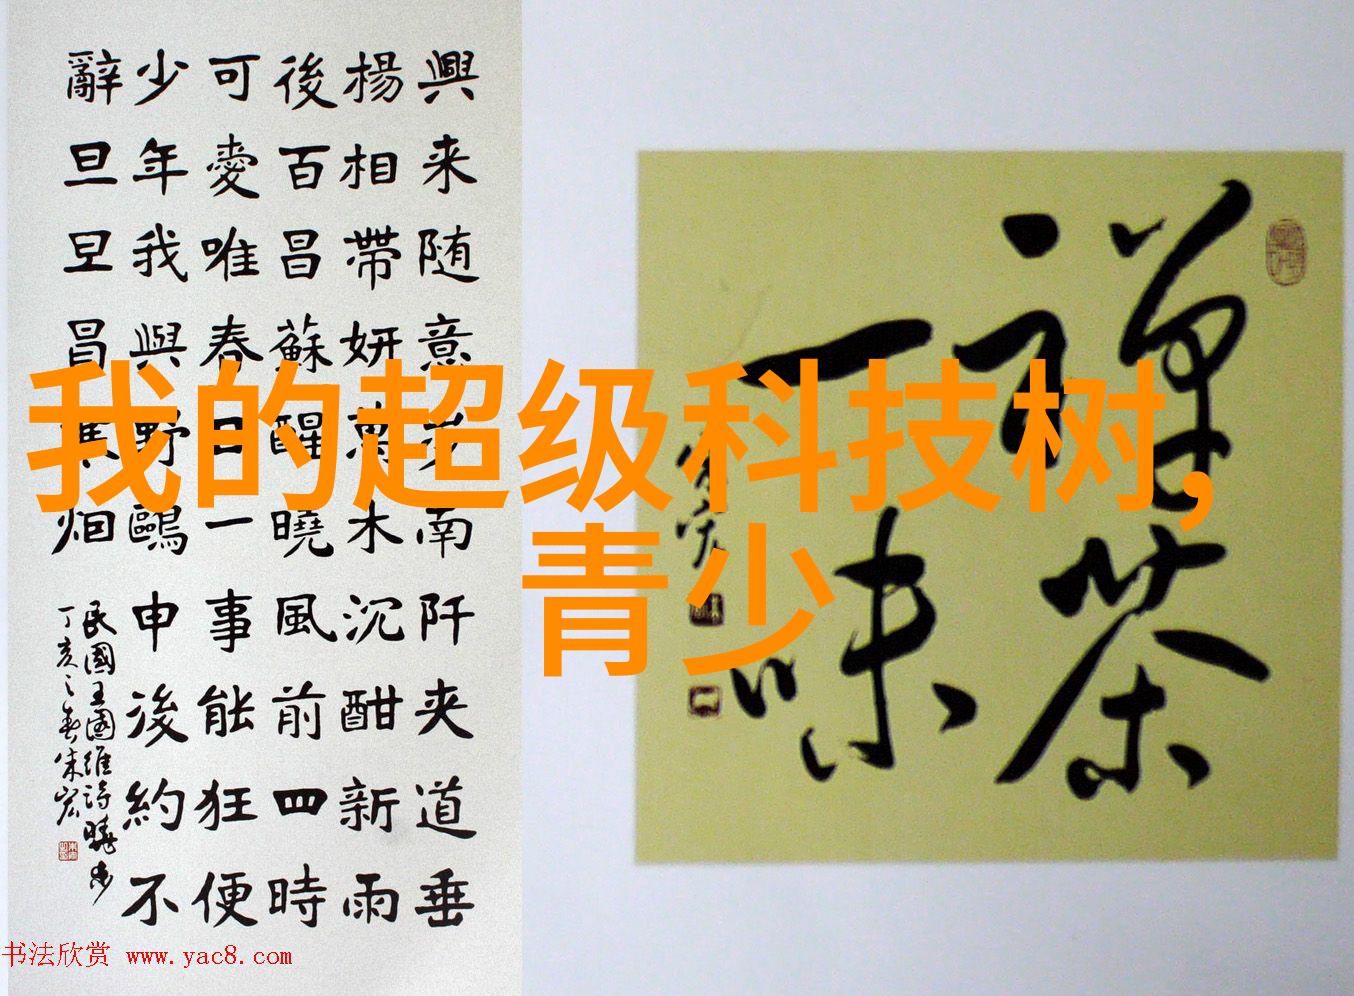 興来随意步南阡夹道垂
楊相帶妍萬木沉酣新雨
後百昌蘇醒曉風前四時
可愛唯春日一事能狂便
少年我與野鷗申後約不
辭旦旦冒寒烟
民國王國維詩曉步
丁亥之春朱宏
禅茶
一味
朱宏
我的超级科技树,
青少
书法欣赏 www.yac8.com